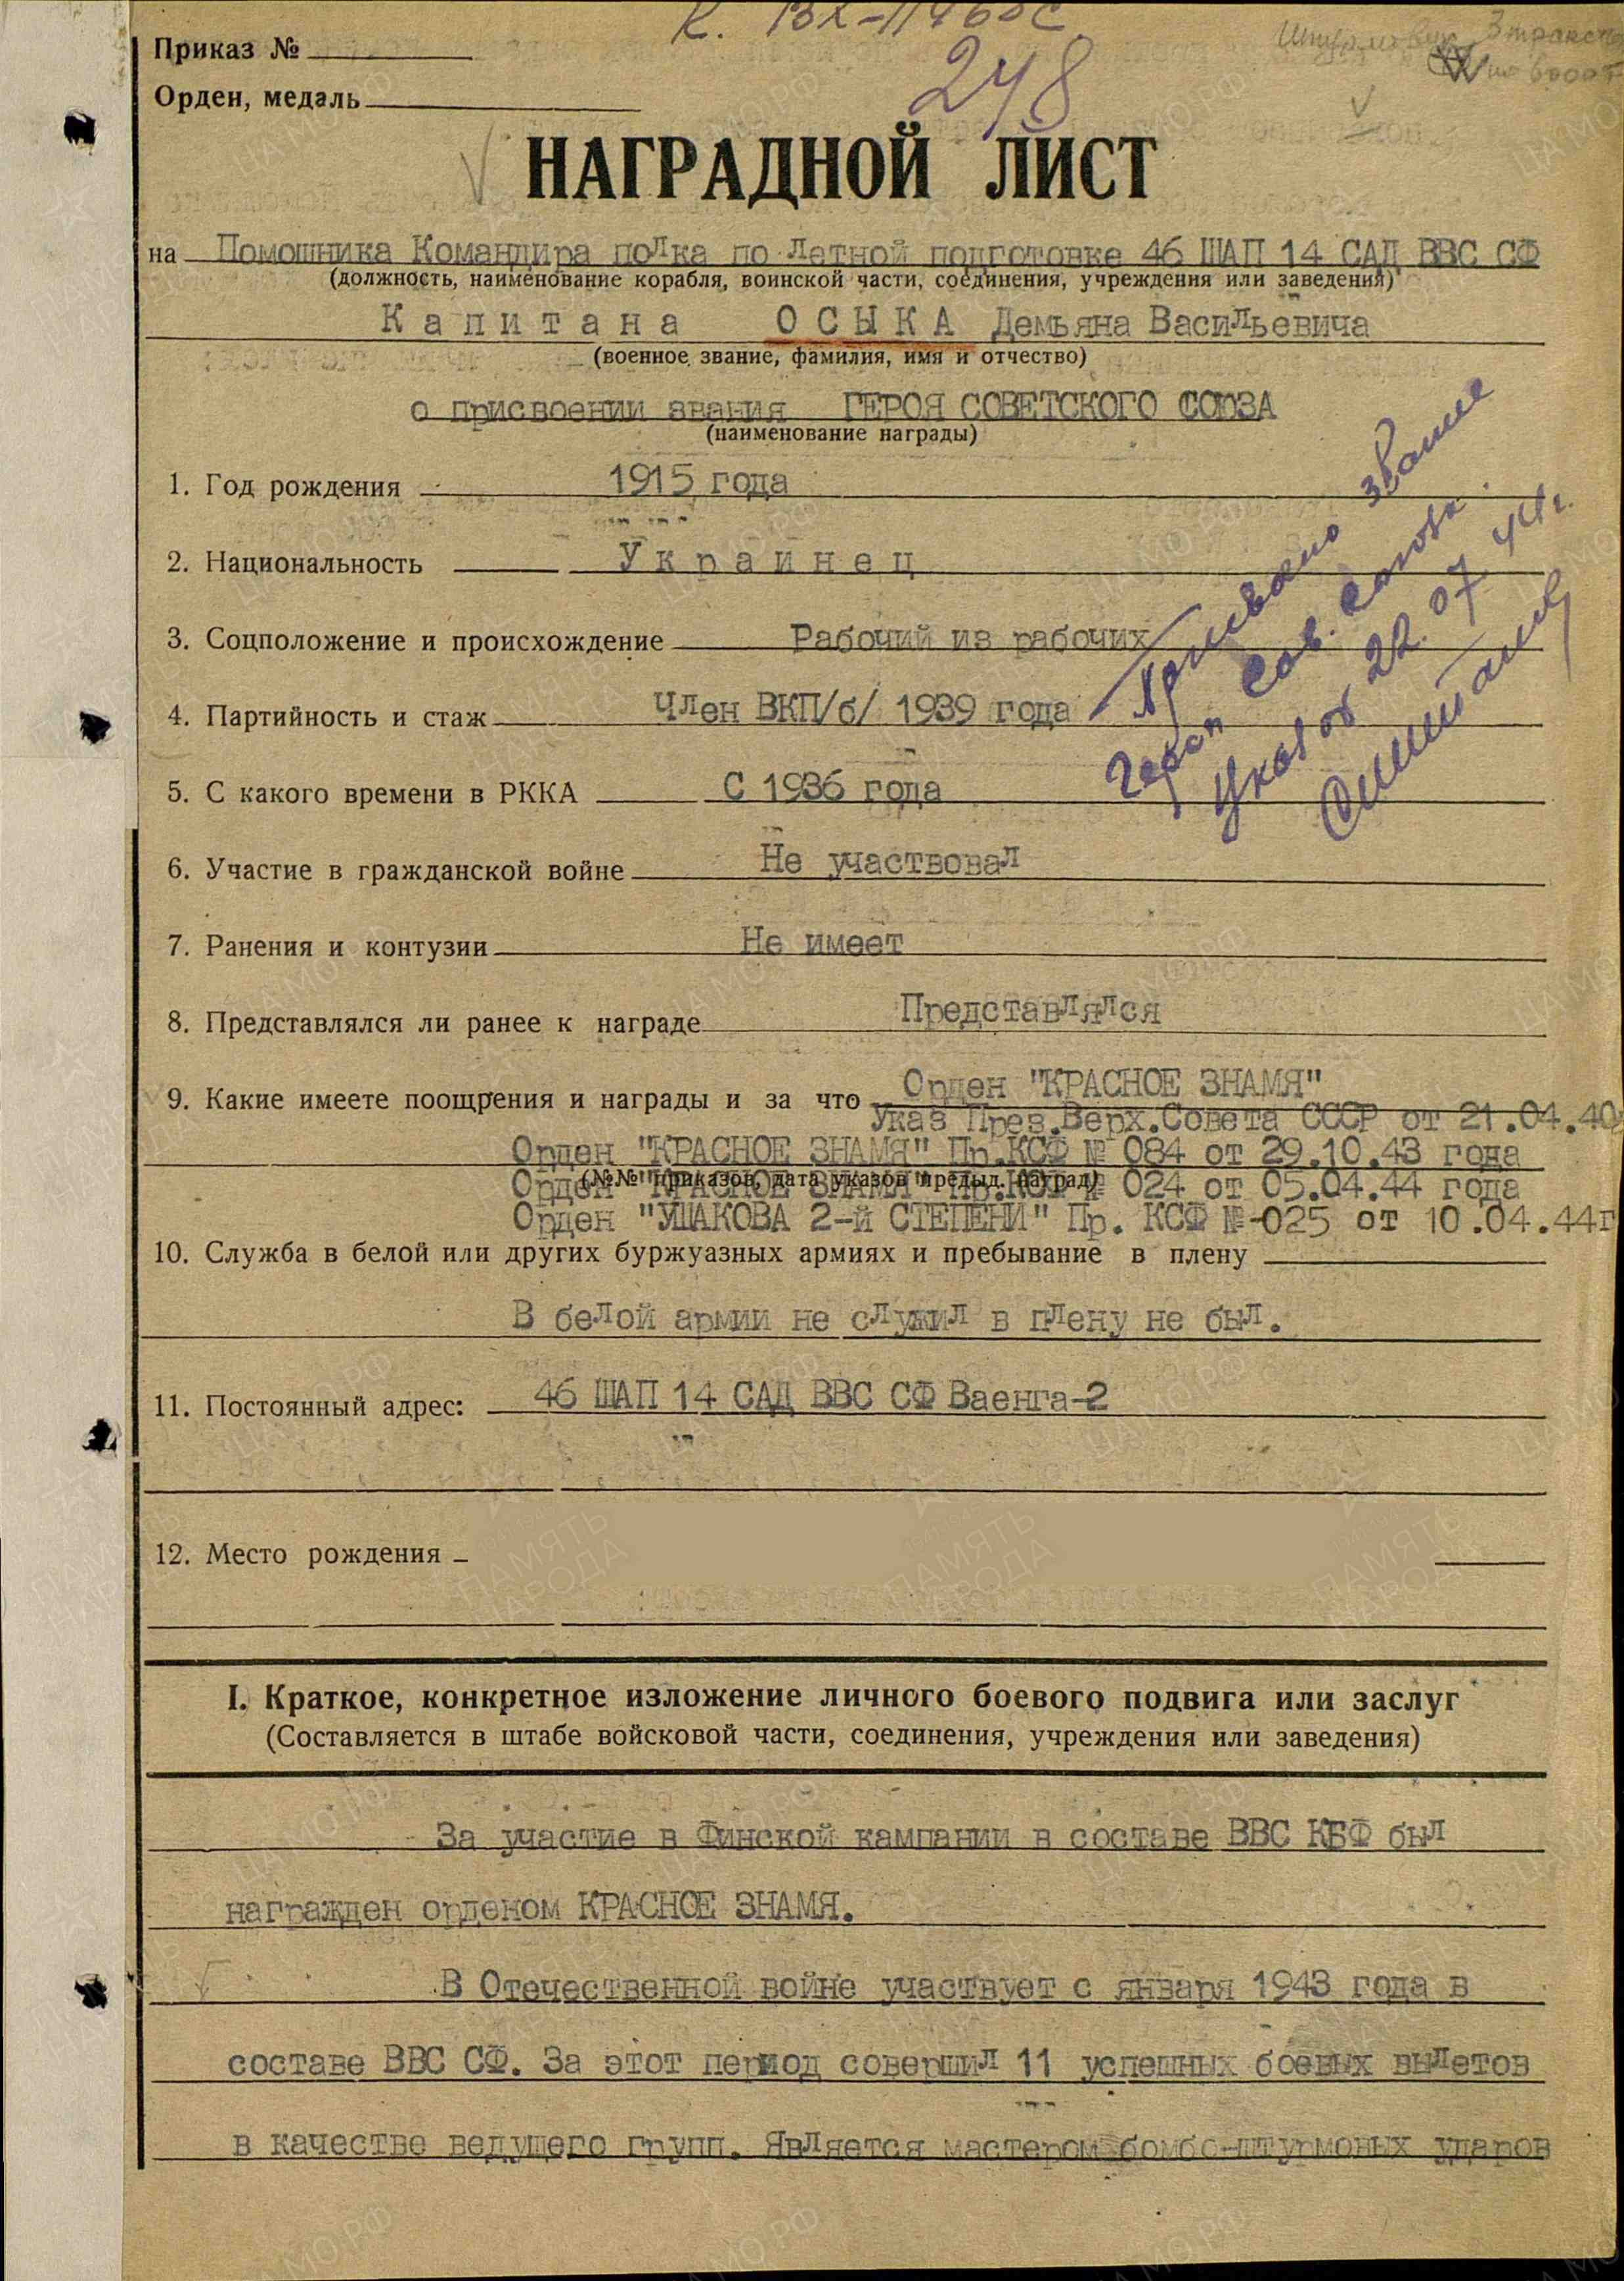 К. ВХ-11460с
248
Приказ №
Орден, медаль
НАГРАДНОЙ ЛИСТ
на Помошника Командира полка по летной подготовке 46 ШАП 14 САД ВВС СФ
(должность, наименование корабля, воинской части, соединения, учреждения или заведения)
Капитана ОСЫКА Демьяна Васильевича
(военное звание, фамилия, имя и отчество)
о присвоении звания ГЕРОЯ СОВЕТСКОГО СОЮЗА
(наименование награды)
1. Год рождения 1915 года
2. Национальность Украинец
3. Соцположение и происхождение Рабочий из рабочих
4. Партийность и стаж Член ВКП/б/ 1939 года
5. С какого времени в РККА С 1936 года
Присвоено звание
Героя Сов. Союза.
Указ от 22.07.44г.
6. Участие в гражданской войне Не участвовал
7. Ранения и контузии Не имеет
8. Представлялся ли ранее к награде Представлялся
9. Какие имеете поощрения и награды и за что Орден "КРАСНОЕ ЗНАМЯ"
Указ През.Верх.Совета СССР от 21.04.40
Орден "КРАСНОЕ ЗНАМЯ" Пр.КСФ № 084 от 29.10.43 года
(№№ приказов, дата указов и предыд. наград)
Орден "КРАСНОЕ ЗНАМЯ" Пр.КСФ № 024 от 05.04.44 года
Орден "УШАКОВА 2-й СТЕПЕНИ" Пр. КСФ №-025 от 10.04.44г
10. Служба в белой или других буржуазных армиях и пребывание в плену
В белой армии не служил в плену не был.
11. Постоянный адрес: 46 ШАП 14 САД ВВС СФ Ваенга-2
12. Место рождения
I. Краткое, конкретное изложение личного боевого подвига или заслуг
(Составляется в штабе войсковой части, соединения, учреждения или заведения)
За участие в Финской кампании в составе ВВС КБФ был
награжден орденом КРАСНОЕ ЗНАМЯ.
В Отечественной войне участвует с января 1943 года в
составе ВВС СФ. За этот период совершил 11 успешных боевых вылетов
в качестве ведущего групп. Является мастером бомбо-штурмовых ударов